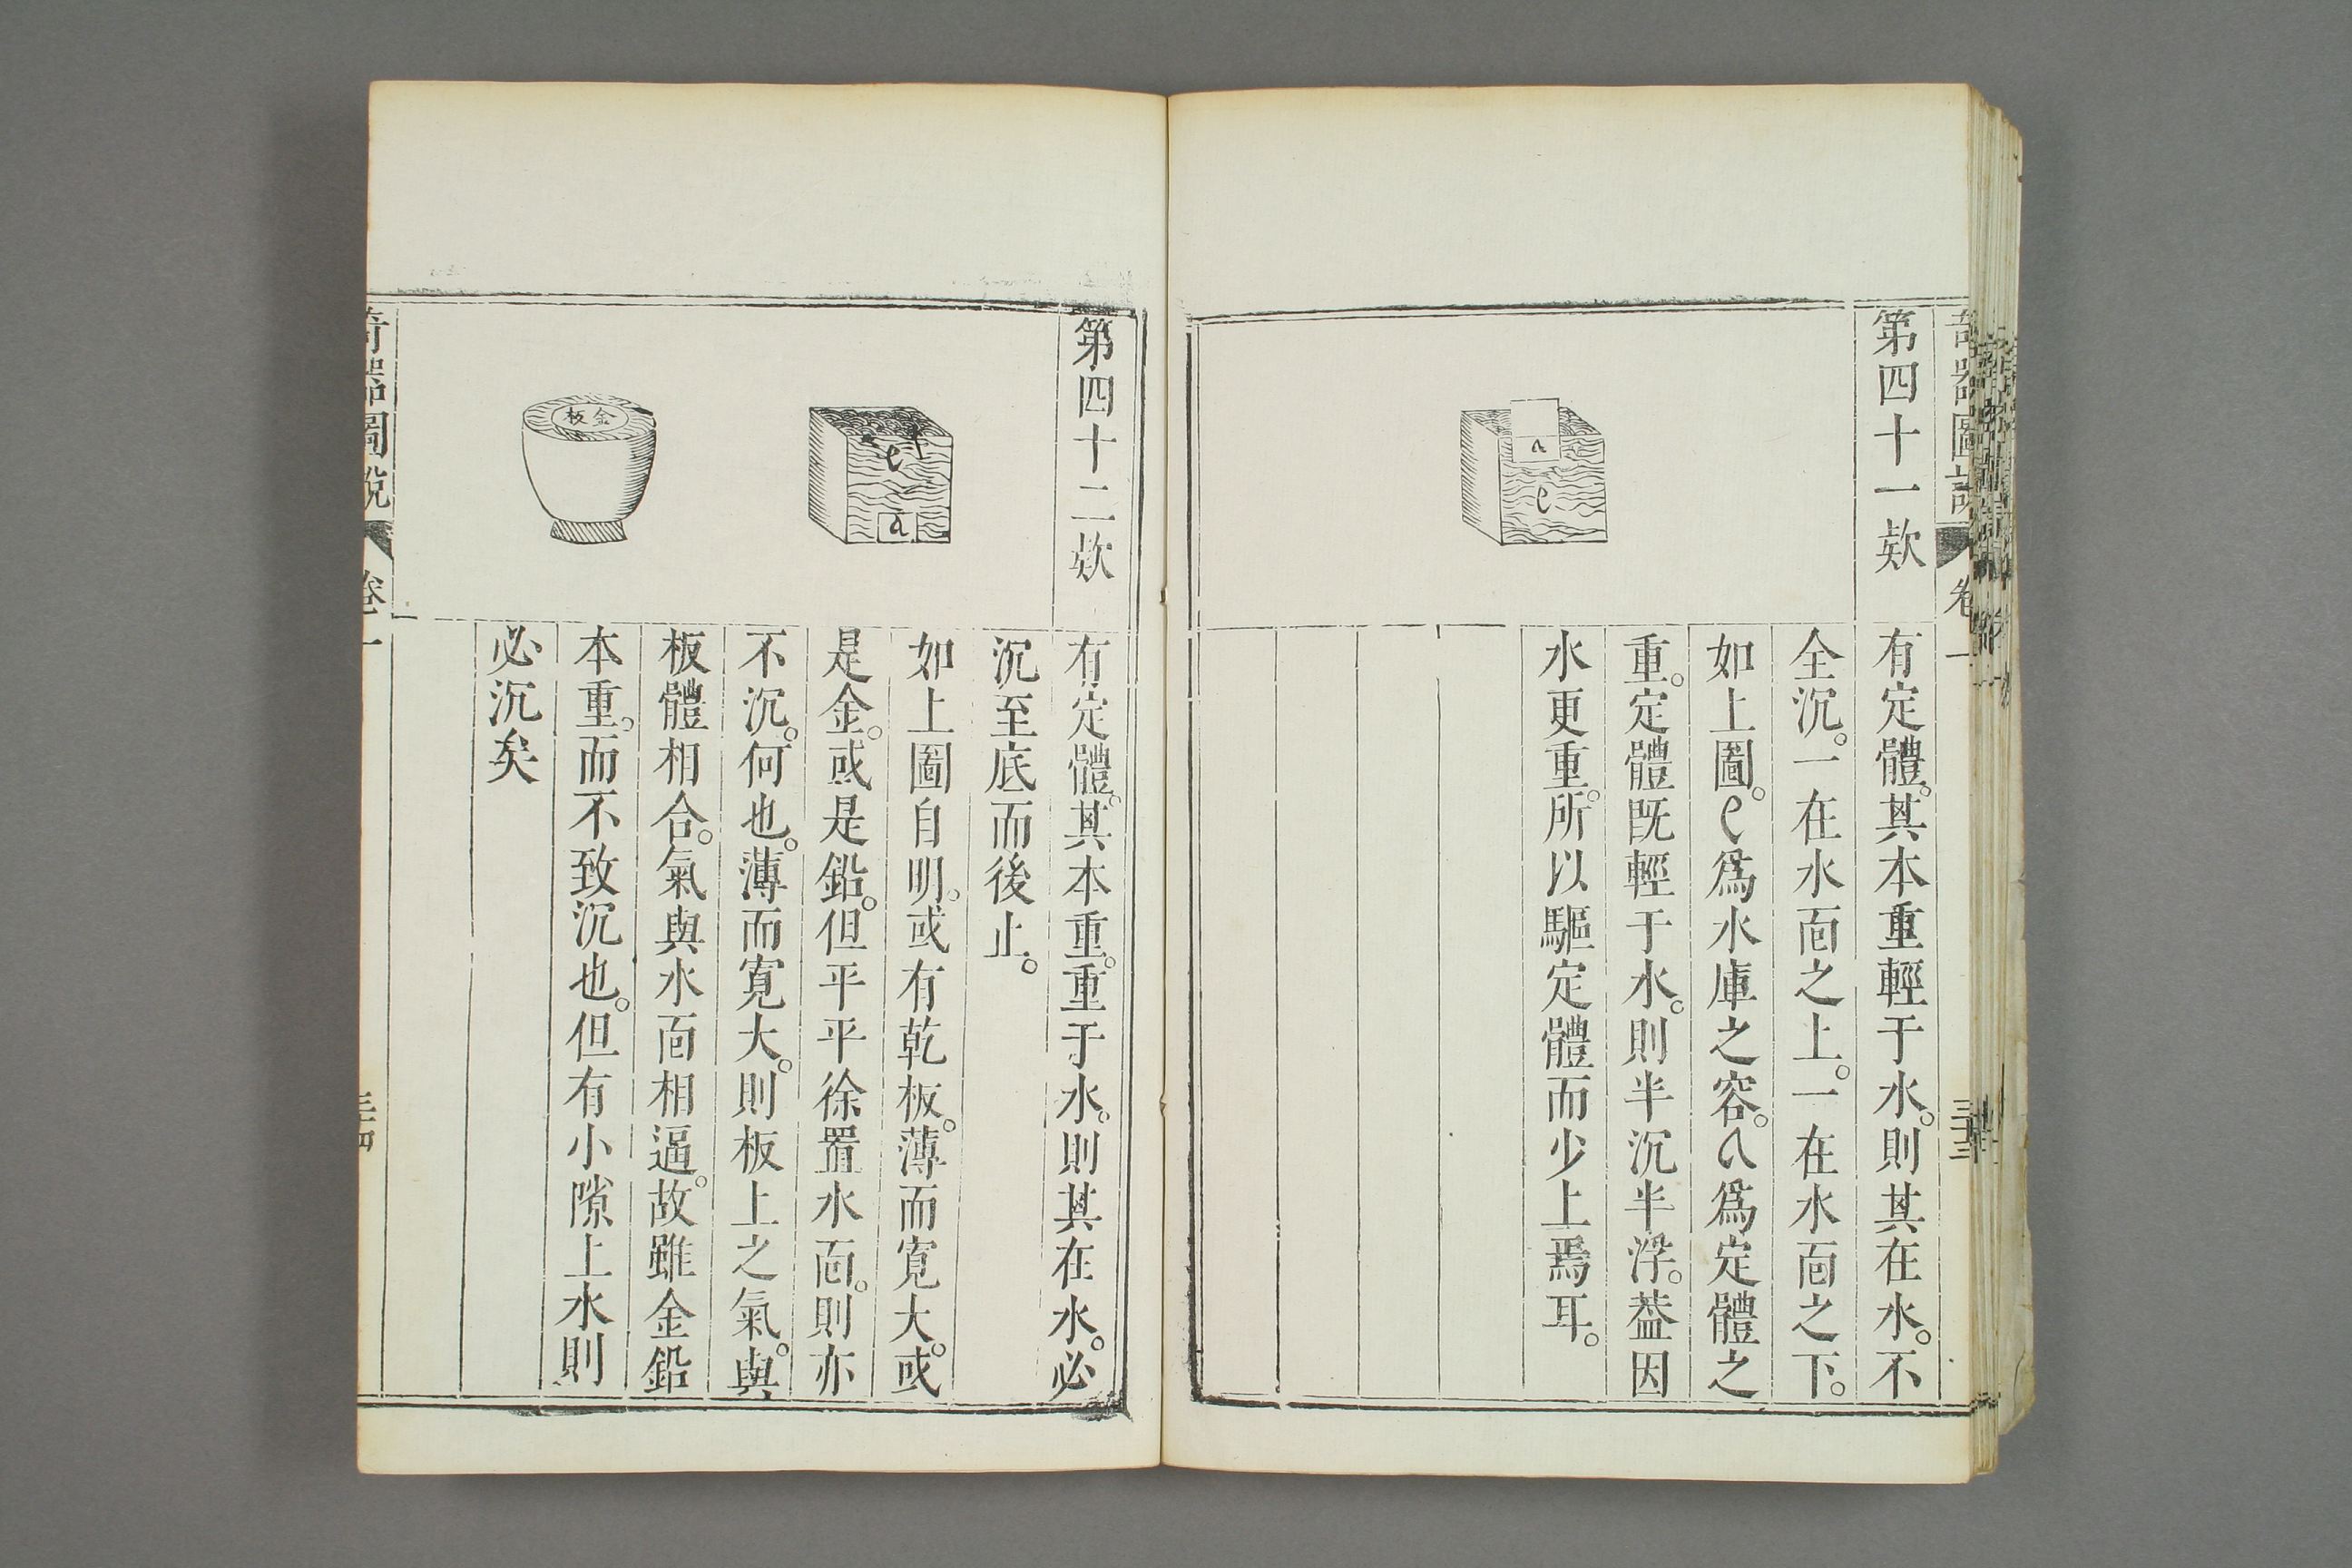 奇器圖說 卷一 三十三
第四十一欵
a
e
有定體。其本重輕于水。則其在水。不
全沉。一在水面之上。一在水面之下。
如上圖。e爲水庫之容。a爲定體之
重。定體既輕于水。則半沉半浮。葢因
水更重。所以驅定體而少上焉耳。
第四十二欵
e
a
金板
有定體。其本重。重于水。則其在水。必
沉至底而後止。
如上圖自明。或有乾板。薄而寬大。或
是金。或是鉛。但平平徐置水面。則亦
不沉。何也。薄而寬大。則板上之氣。與
板體相合。氣與水面相逼。故雖金鉛
本重。而不致沉也。但有小隙上水則
必沉矣
奇器圖說 卷一 三十四